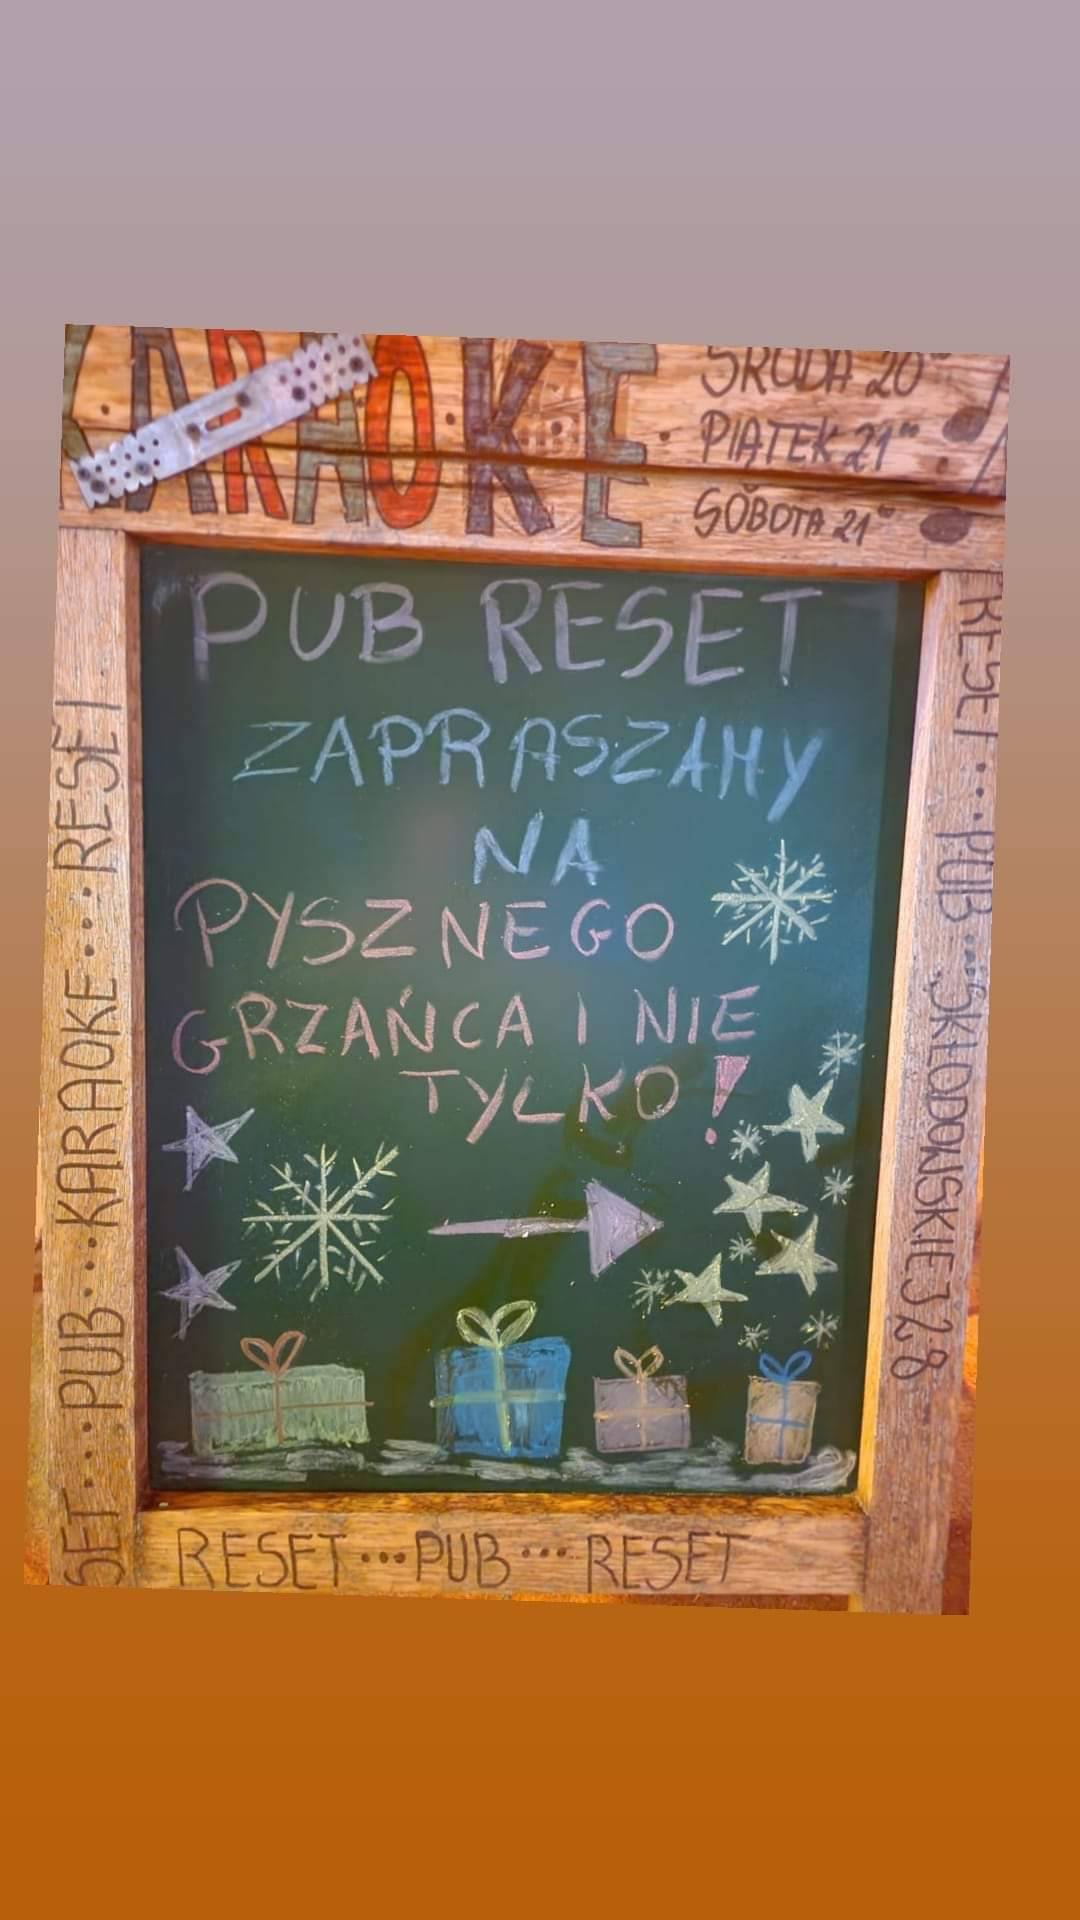 KARAOKE
ŚRODA 20⁰⁰
PIĄTEK 21⁰⁰
SOBOTA 21⁰⁰
PUB RESET
ZAPRASZAMY
NA
PYSZNEGO
GRZAŃCA I NIE
TYLKO!
SET...PUB...KARAOKE...RESET
RESET...PUB...SKŁODOWSKIEJ 28
RESET...PUB...RESET